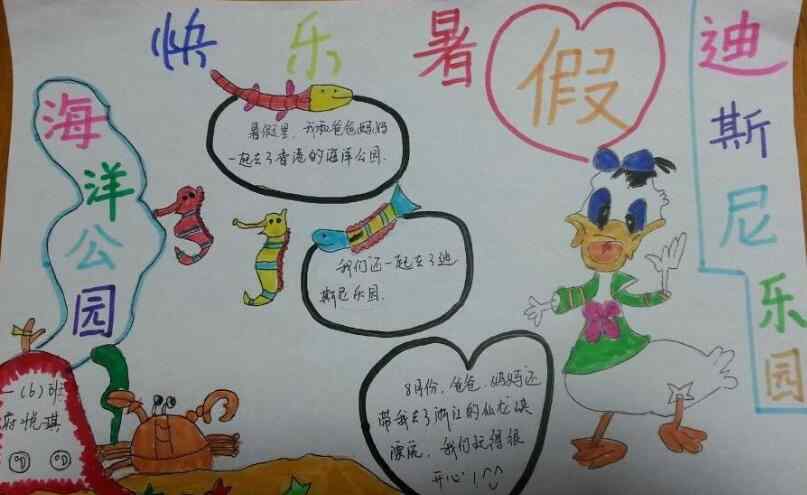 快乐暑假
迪斯尼乐园
海洋公园
暑假里,我和爸爸妈妈
一起去了香港的海洋公园.
我们还一起去了迪
斯尼乐园.
8月份,爸爸、妈妈还
带我去了浙江的仙龙峡
漂流,我们玩得很
开心!
一(6)班
悦琪